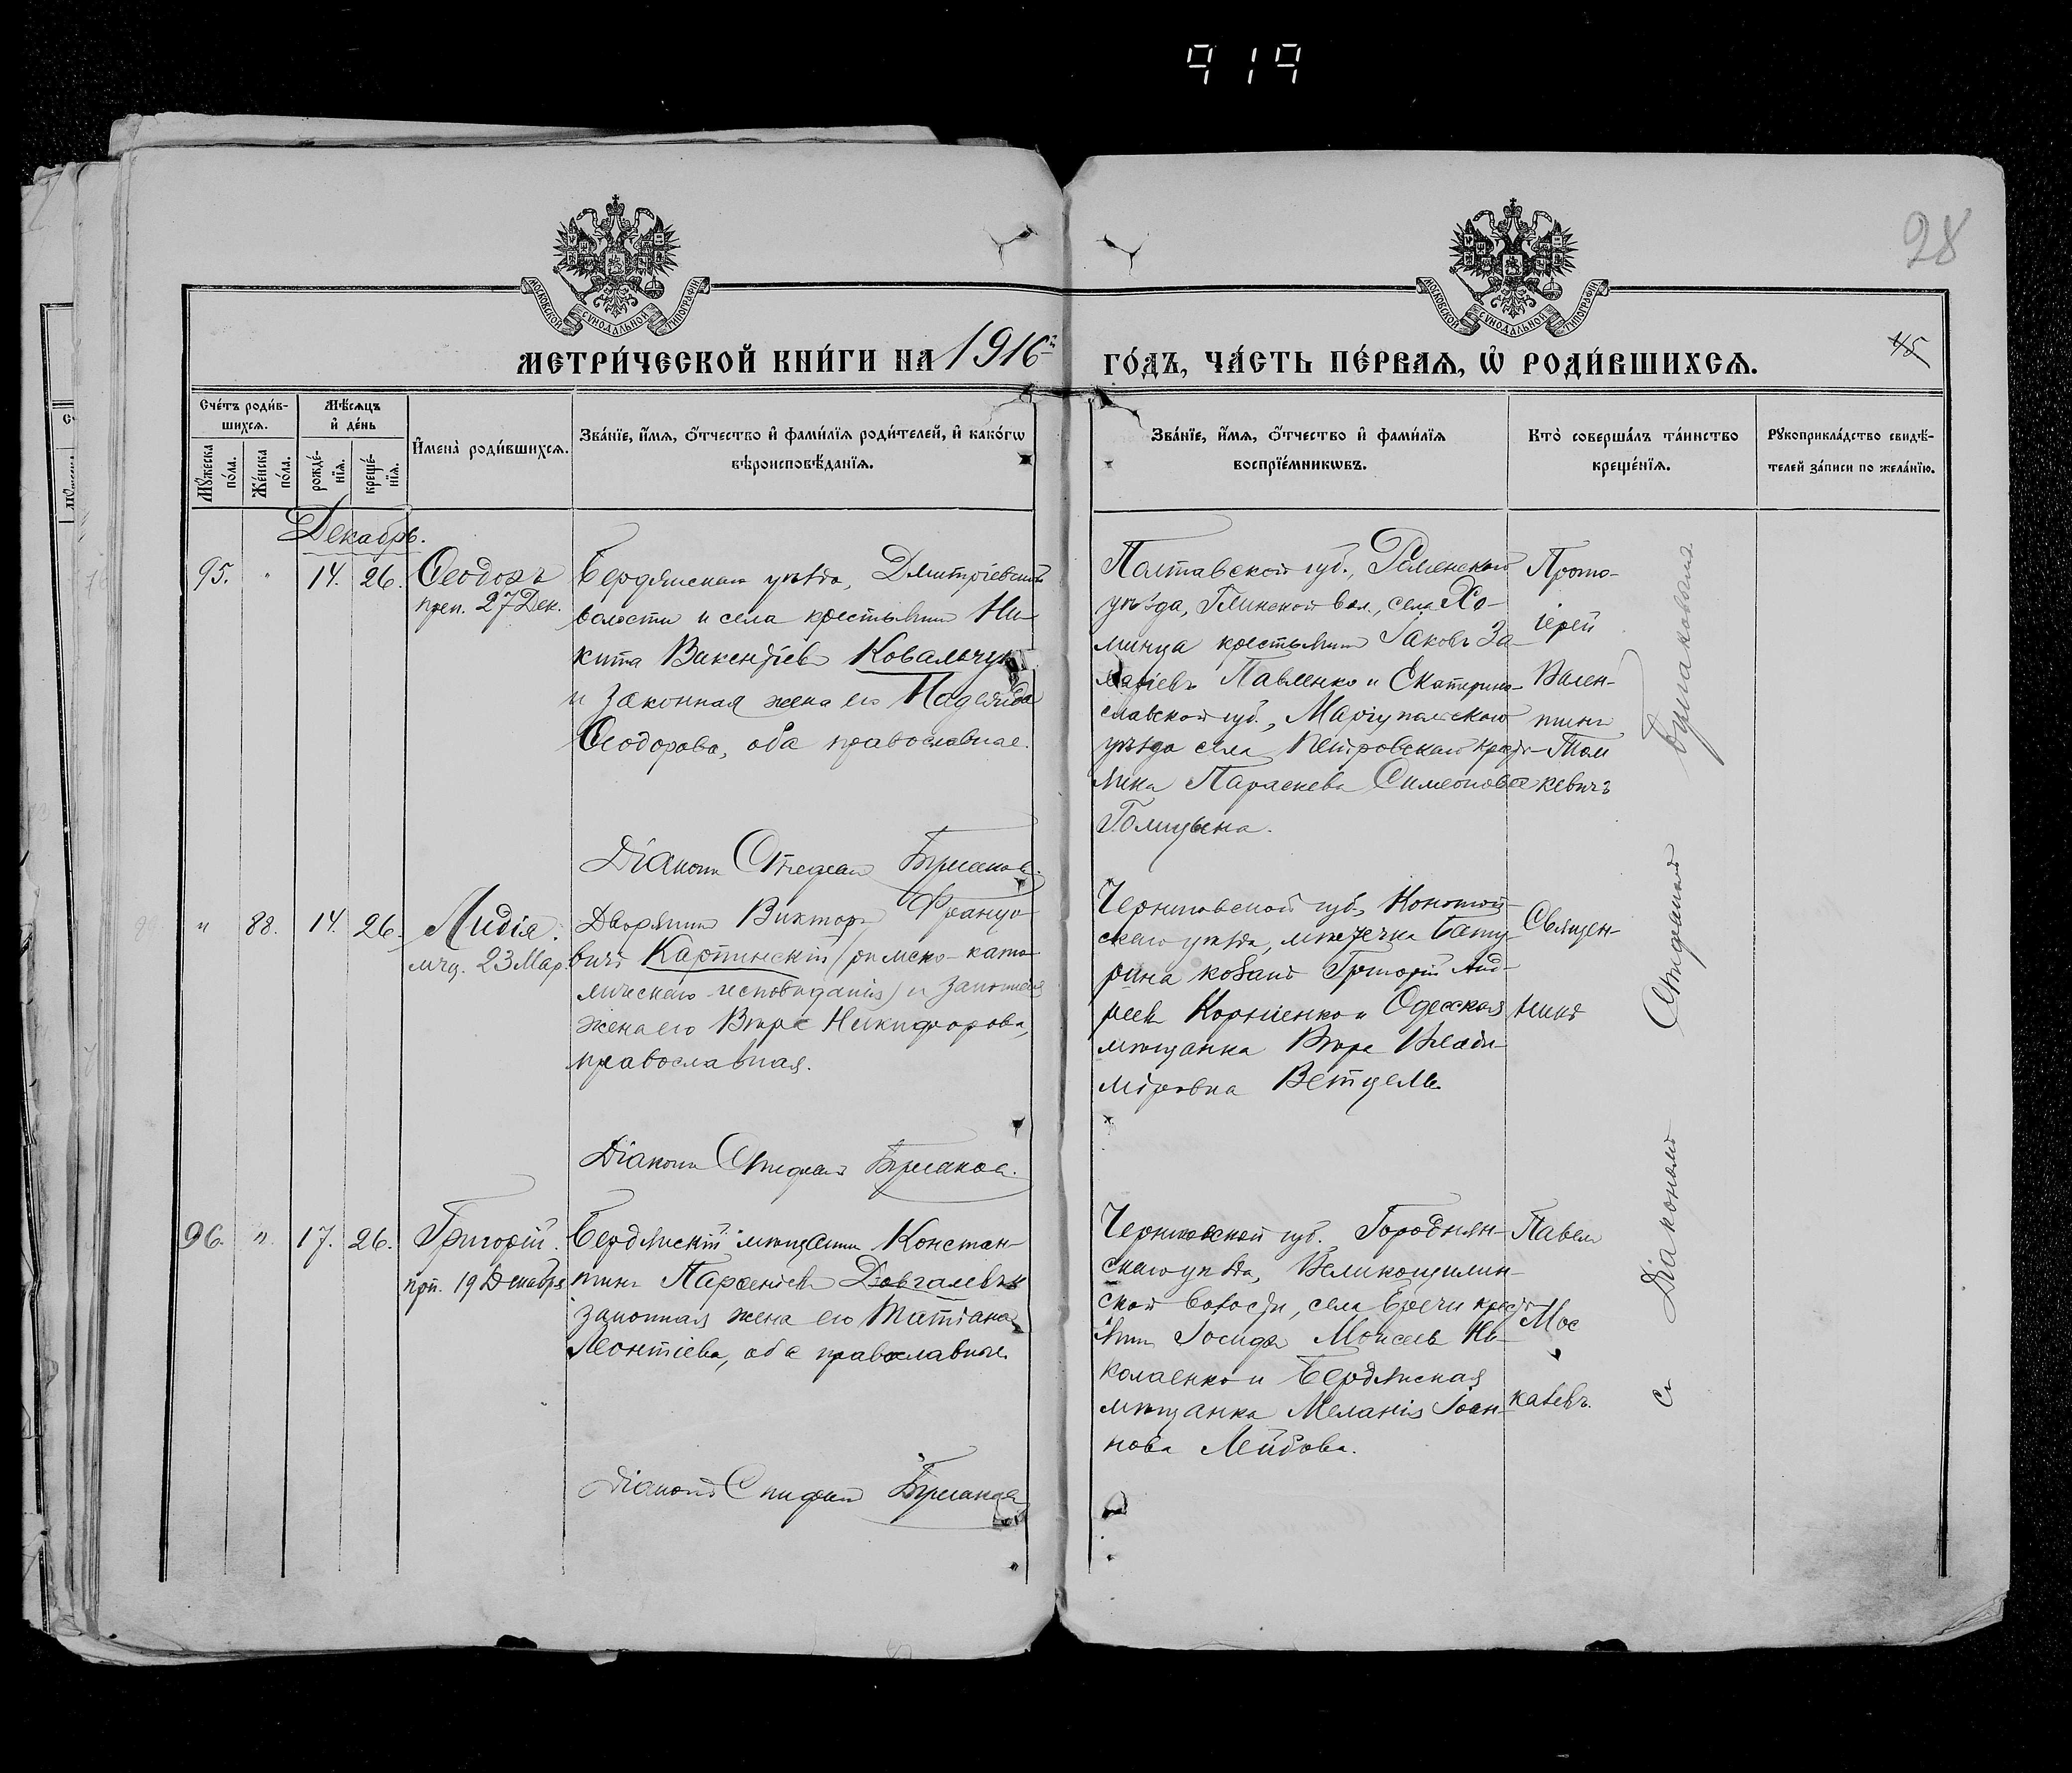 919
28
МОСКОВСКОЙ СѴНОДАЛЬНОЙ ТИПОГРАФІИ
МОСКОВСКОЙ СѴНОДАЛЬНОЙ ТИПОГРАФІИ
МЕТРИ́ЧЕСКОЙ КНИ́ГИ НА 1916й ГО́ДЪ, ЧА́СТЬ ПЕ́РВАѦ, Ѽ РОДИ́ВШИХСѦ.
45
Сче́тъ роди́в-
шихсѧ.
Мꙋ́жеска по́ла.
Же́нска по́ла.
Мѣ́сѧцъ и҆ де́нь
рожде́-
нїѧ.
креще́-
нїѧ.
И҆мена̀ роди́вшихсѧ.
Зва́нїе, и҆́мѧ, ѻ҆́тчество и҆ фами́лїѧ роди́телей, и҆ како́гѡ
вѣроисповѣ́данїѧ.
Зва́нїе, и҆́мѧ, ѻ҆́тчество и҆ фами́лїѧ
воспрїе́мникѡвъ.
Кто̀ соверша́лъ та́инство
креще́нїѧ.
Рꙋкоприкла́дство свидѣ́-
телей за́писи по жела́нїю.
Декабрь.
95. " 14. 26.
Ѳеодоръ
преп. 27 Дек.
Бердянскаго уѣзда, Дмитріевской
волости и села крестьянинъ Ни-
кита Викентіевъ Ковальчукъ
и законная жена его Надежда
Ѳеодорова, оба православные.
Діаконъ Спиридонъ Бурлаковъ.
Полтавской губ., Роменскаго
уѣзда, Глинской вол., села Хо-
минца крестьянинъ Іаковъ За-
харіевъ Павленко и Екатерино-
славской губ., Маріупольскаго
уѣзда села Петровскаго кресть-
янка Параскева Симеонова
Голицына.
Прото-
іерей
Вален-
тинъ
Том
кевичъ
" 88. 14. 26.
Лидія.
мчц. 23 Мар.
Дворянинъ Викторъ Францо-
вичъ Карпинскій (римско-като-
лическаго исповѣданія) и законная
жена его Вѣра Никифорова,
православная.
Діаконъ Спиридонъ Бурлаковъ.
Черниговской губ., Конотоп-
скаго уѣзда, мѣстечка Бату-
рина козакъ Григорій Анд-
реевъ Корніенко и Одесская
мѣщанка Вѣра Влади-
міровна Ветцель.
Священ-
никъ
96. " 17. 26.
Григорій.
пр. 19 Декабря
Бердянскій мѣщанинъ Констан-
тинъ Парѳеніевъ Довгалевъ и
законная жена его Татіана
Леонтіева, оба православные.
Діаконъ Спиридонъ Бурлаковъ
Черниговской губ. Городнян-
скаго уѣзда, Великощимли-
ской волости, села кресть-
янинъ Іосифъ Моисеевъ Ни-
колаенко и Бердянская
мѣщанка Меланія Іоан-
нова Лейбова.
Павелъ
Мос
калевъ.
съ Діакономъ Спиридономъ Бурлаковымъ